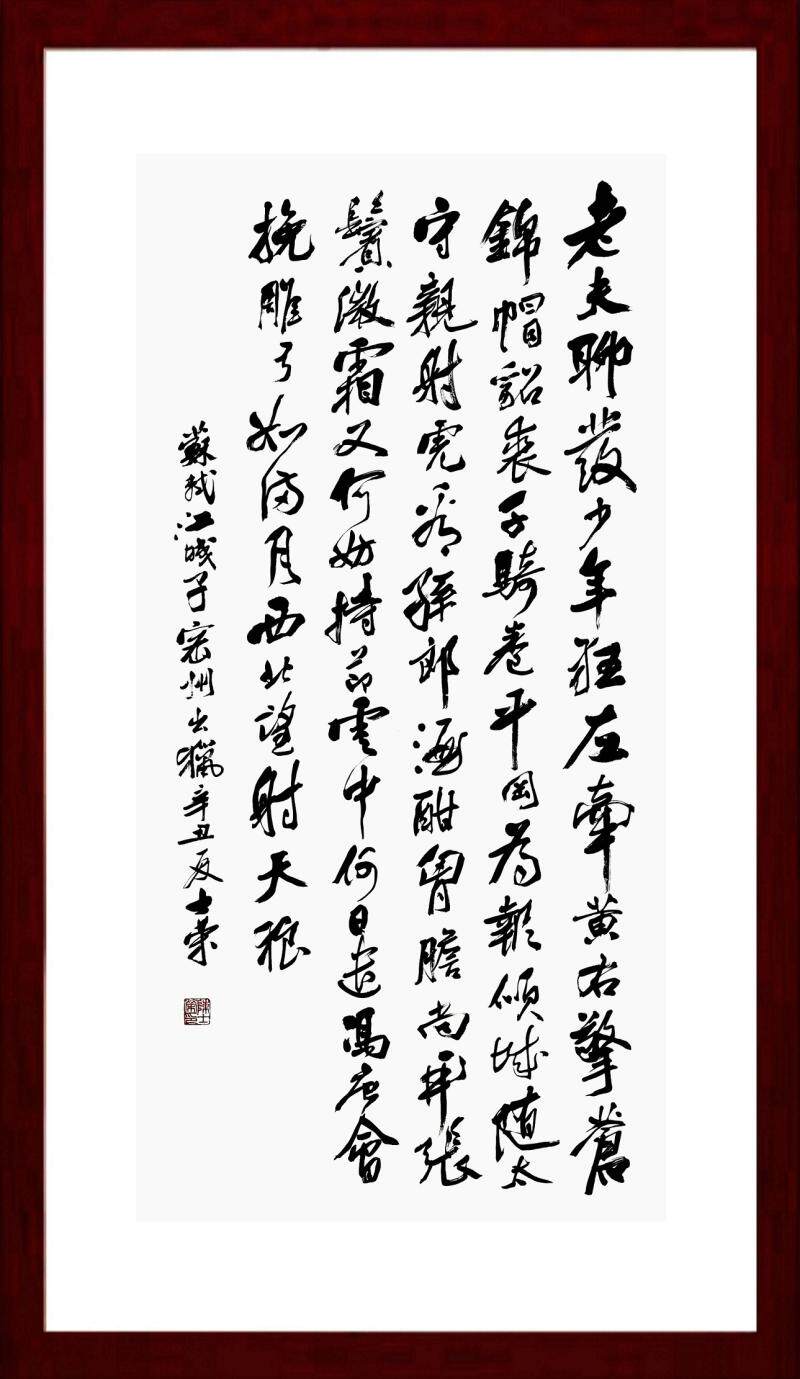 老夫聊發少年狂左牽黃右擎蒼
錦帽貂裘千騎卷平岡為報傾城随太
守親射虎看孫郎酒酣胷膽尚開張
鬢微霜又何妨持節雲中何日遣馮唐會
挽雕弓如滿月西北望射天狼
蘇軾江城子密州出獵辛丑夏士榮